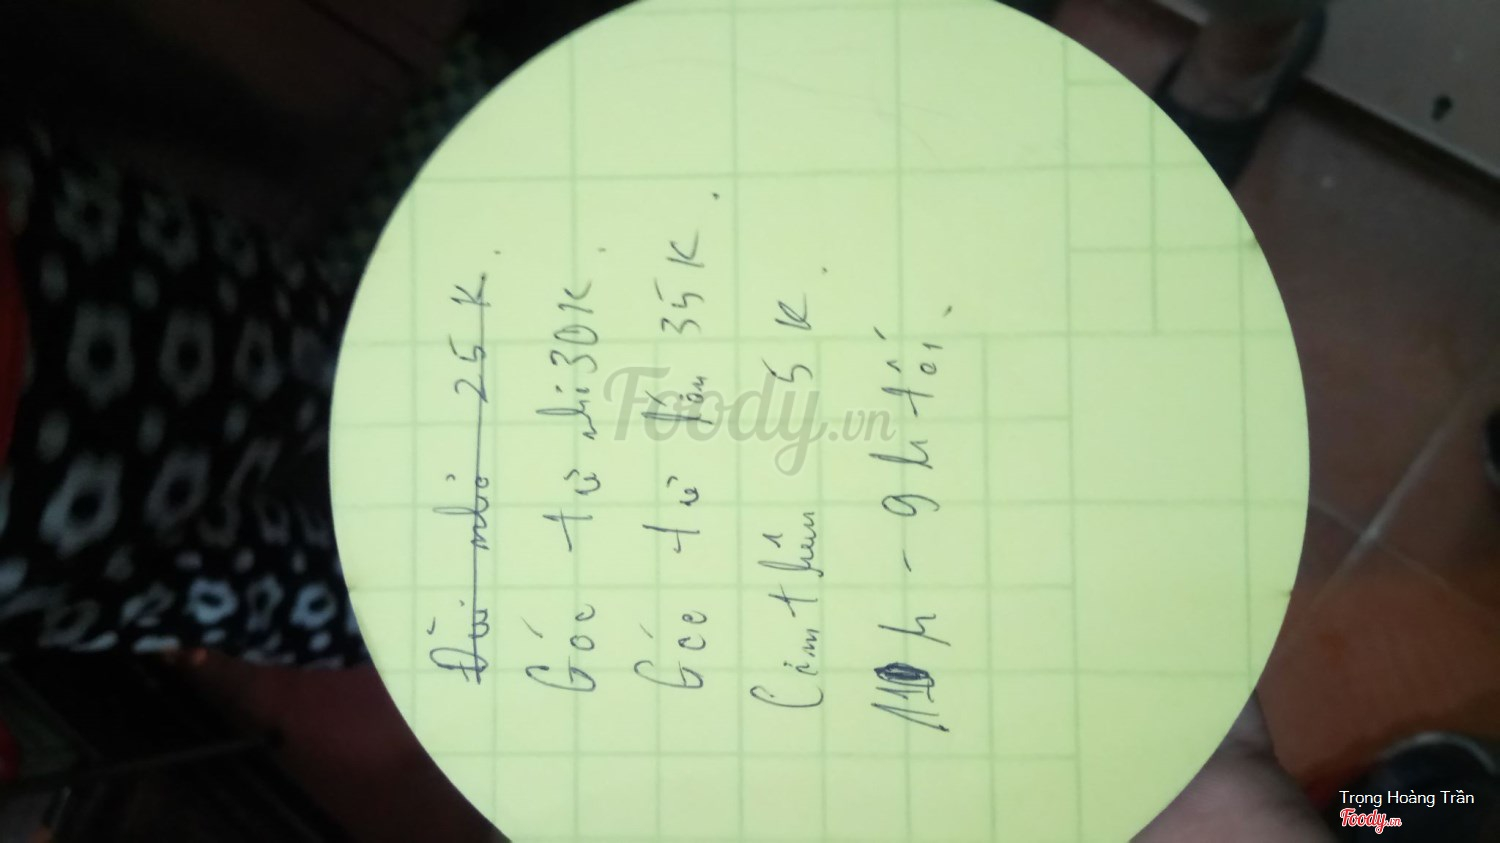 Đùi nhỏ 25 K.
Góc tư nhỏ 30K.
Góc tư lớn 35K.
Cơm thêm 5 K.
11 h - 9 h tối.
Foody.vn
Trọng Hoàng Trần
Foody.vn